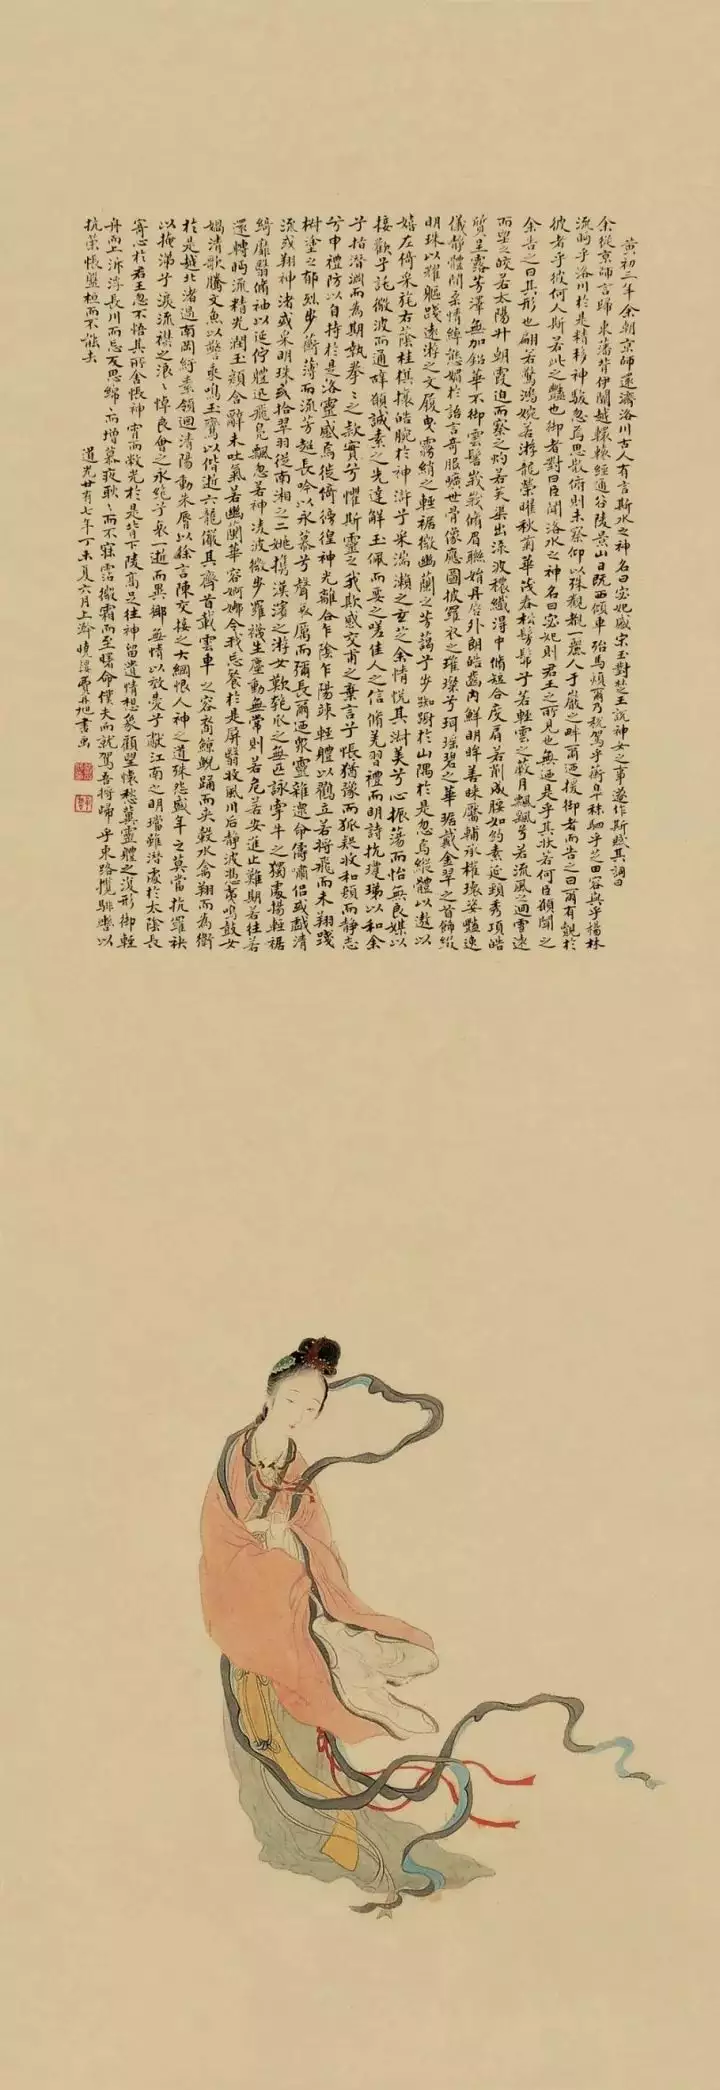 黃初三年余朝京師還濟洛川古人有言斯水之神名曰宓妃感宋玉對楚王說神女之事遂作斯賦其詞曰
余從京師言歸東藩背伊闕越轘轅經通谷陵景山日既西傾車殆馬煩爾乃稅駕乎蘅皋秣駟乎芝田容與乎楊林
流眄乎洛川於是精移神駭忽焉思散俯則未察仰以殊觀覩一麗人于巖之畔爾迺援御者而告之曰爾有覿於
彼者乎彼何人斯若此之豔也御者對曰臣聞洛水之神名曰宓妃則君王之所見也無迺是乎其狀若何臣願聞之
余告之曰其形也翩若驚鴻婉若游龍榮曜秋菊華茂春松髣髴乎若輕雲之蔽月飄颻兮若流風之迴雪遠
而望之皎若太陽升朝霞迫而察之灼若芙蕖出淥波穠纖得中脩短合度肩若削成腰如約素延頸秀項皓
質呈露芳澤無加鉛華不御雲髻峩峩脩眉聯娟丹脣外朗皓齒內鮮明眸善睞靨輔承權瓌姿豔逸
儀靜體閒柔情綽態媚於語言奇服曠世骨像應圖披羅衣之璀璨兮珥瑤碧之華琚戴金翠之首飾綴
明珠以耀軀踐遠遊之文履曳霧綃之輕裾微幽蘭之芳藹兮步踟躕於山隅於是忽焉縱體以遨以
嬉左倚采旄右蔭桂旗攘皓腕於神滸兮采湍瀨之玄芝余情悅其淑美兮心振蕩而怡無良媒以
接歡兮託微波而通辭願誠素之先達解玉佩而要之嗟佳人之信脩羌習禮而明詩抗瓊珶以和余
兮指潛淵而為期執拳〻之款實兮懼斯靈之我欺感交甫之棄言兮悵猶豫而狐疑收和顏而靜志
兮申禮防以自持於是洛靈感焉徙倚徬徨神光離合乍陰乍陽竦輕體以鶴立若將飛而未翔踐
椒塗之郁烈步蘅薄而流芳超長吟以永慕兮聲哀厲而彌長爾迺眾靈雜遝命儔嘯侶或戲清
流或翔神渚或采明珠或拾翠羽從南湘之二姚攜漢濱之游女歎匏瓜之無匹詠牽牛之獨處揚輕裾
綺靡翳脩袖以延佇體迅飛鳧飄忽若神淩波微步羅襪生塵動無常則若危若安進止難期若往若
還轉眄流精光潤玉顏含辭未吐氣若幽蘭華容婀娜令我忘餐於是屏翳收風川后靜波馮夷鳴鼓女
媧清歌騰文魚以警乘鳴玉鸞以偕逝六龍儼其齊首載雲車之容裔鯨鯢踊而夾轂水禽翔而為衛
於是越北渚過南岡紆素領迴清陽動朱脣以徐言陳交接之大綱恨人神之道殊怨盛年之莫當抗羅袂
以掩涕兮淚流襟之浪〻悼良會之永絕兮哀一逝而異鄉無情以效愛兮獻江南之明璫雖潛處於太陰長
寄心於君王忽不悟其所舍悵神宵而蔽光於是背下陵高足往神留遺情想象顧望懷愁冀靈體之復形御輕
舟而上泝浮長川而忘反思綿〻而增慕夜耿〻而不寐霑繁霜而至曙命僕夫而就駕吾將歸乎東路攬騑轡以
抗策悵盤桓而不能去
道光廿有七年丁未夏六月上澣曉樓費丹旭書畫